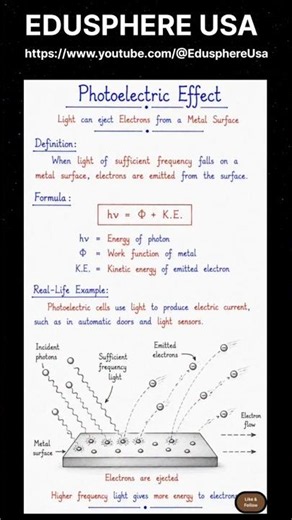 EDUSPHERE USA
https://www.youtube.com/@EdusphereUsa
Photoelectric Effect
Light can eject Electrons from a Metal Surface
Definition:
When light of sufficient frequency falls on a
metal surface, electrons are emitted from the surface.
Formula:
hν = Φ + K.E.
hν = Energy of photon
Φ = Work function of metal
K.E. = Kinetic energy of emitted electron
Real-Life Example:
Photoelectric cells use light to produce electric current,
such as in automatic doors and light sensors.
Incident
photons
Sufficient
frequency
light
Emitted
electrons
Electron
flow
Metal
surface
Electrons are ejected
Higher frequency light gives more energy to electrons
Like &
Follow